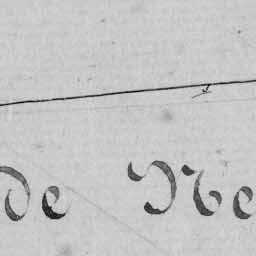 de Ne